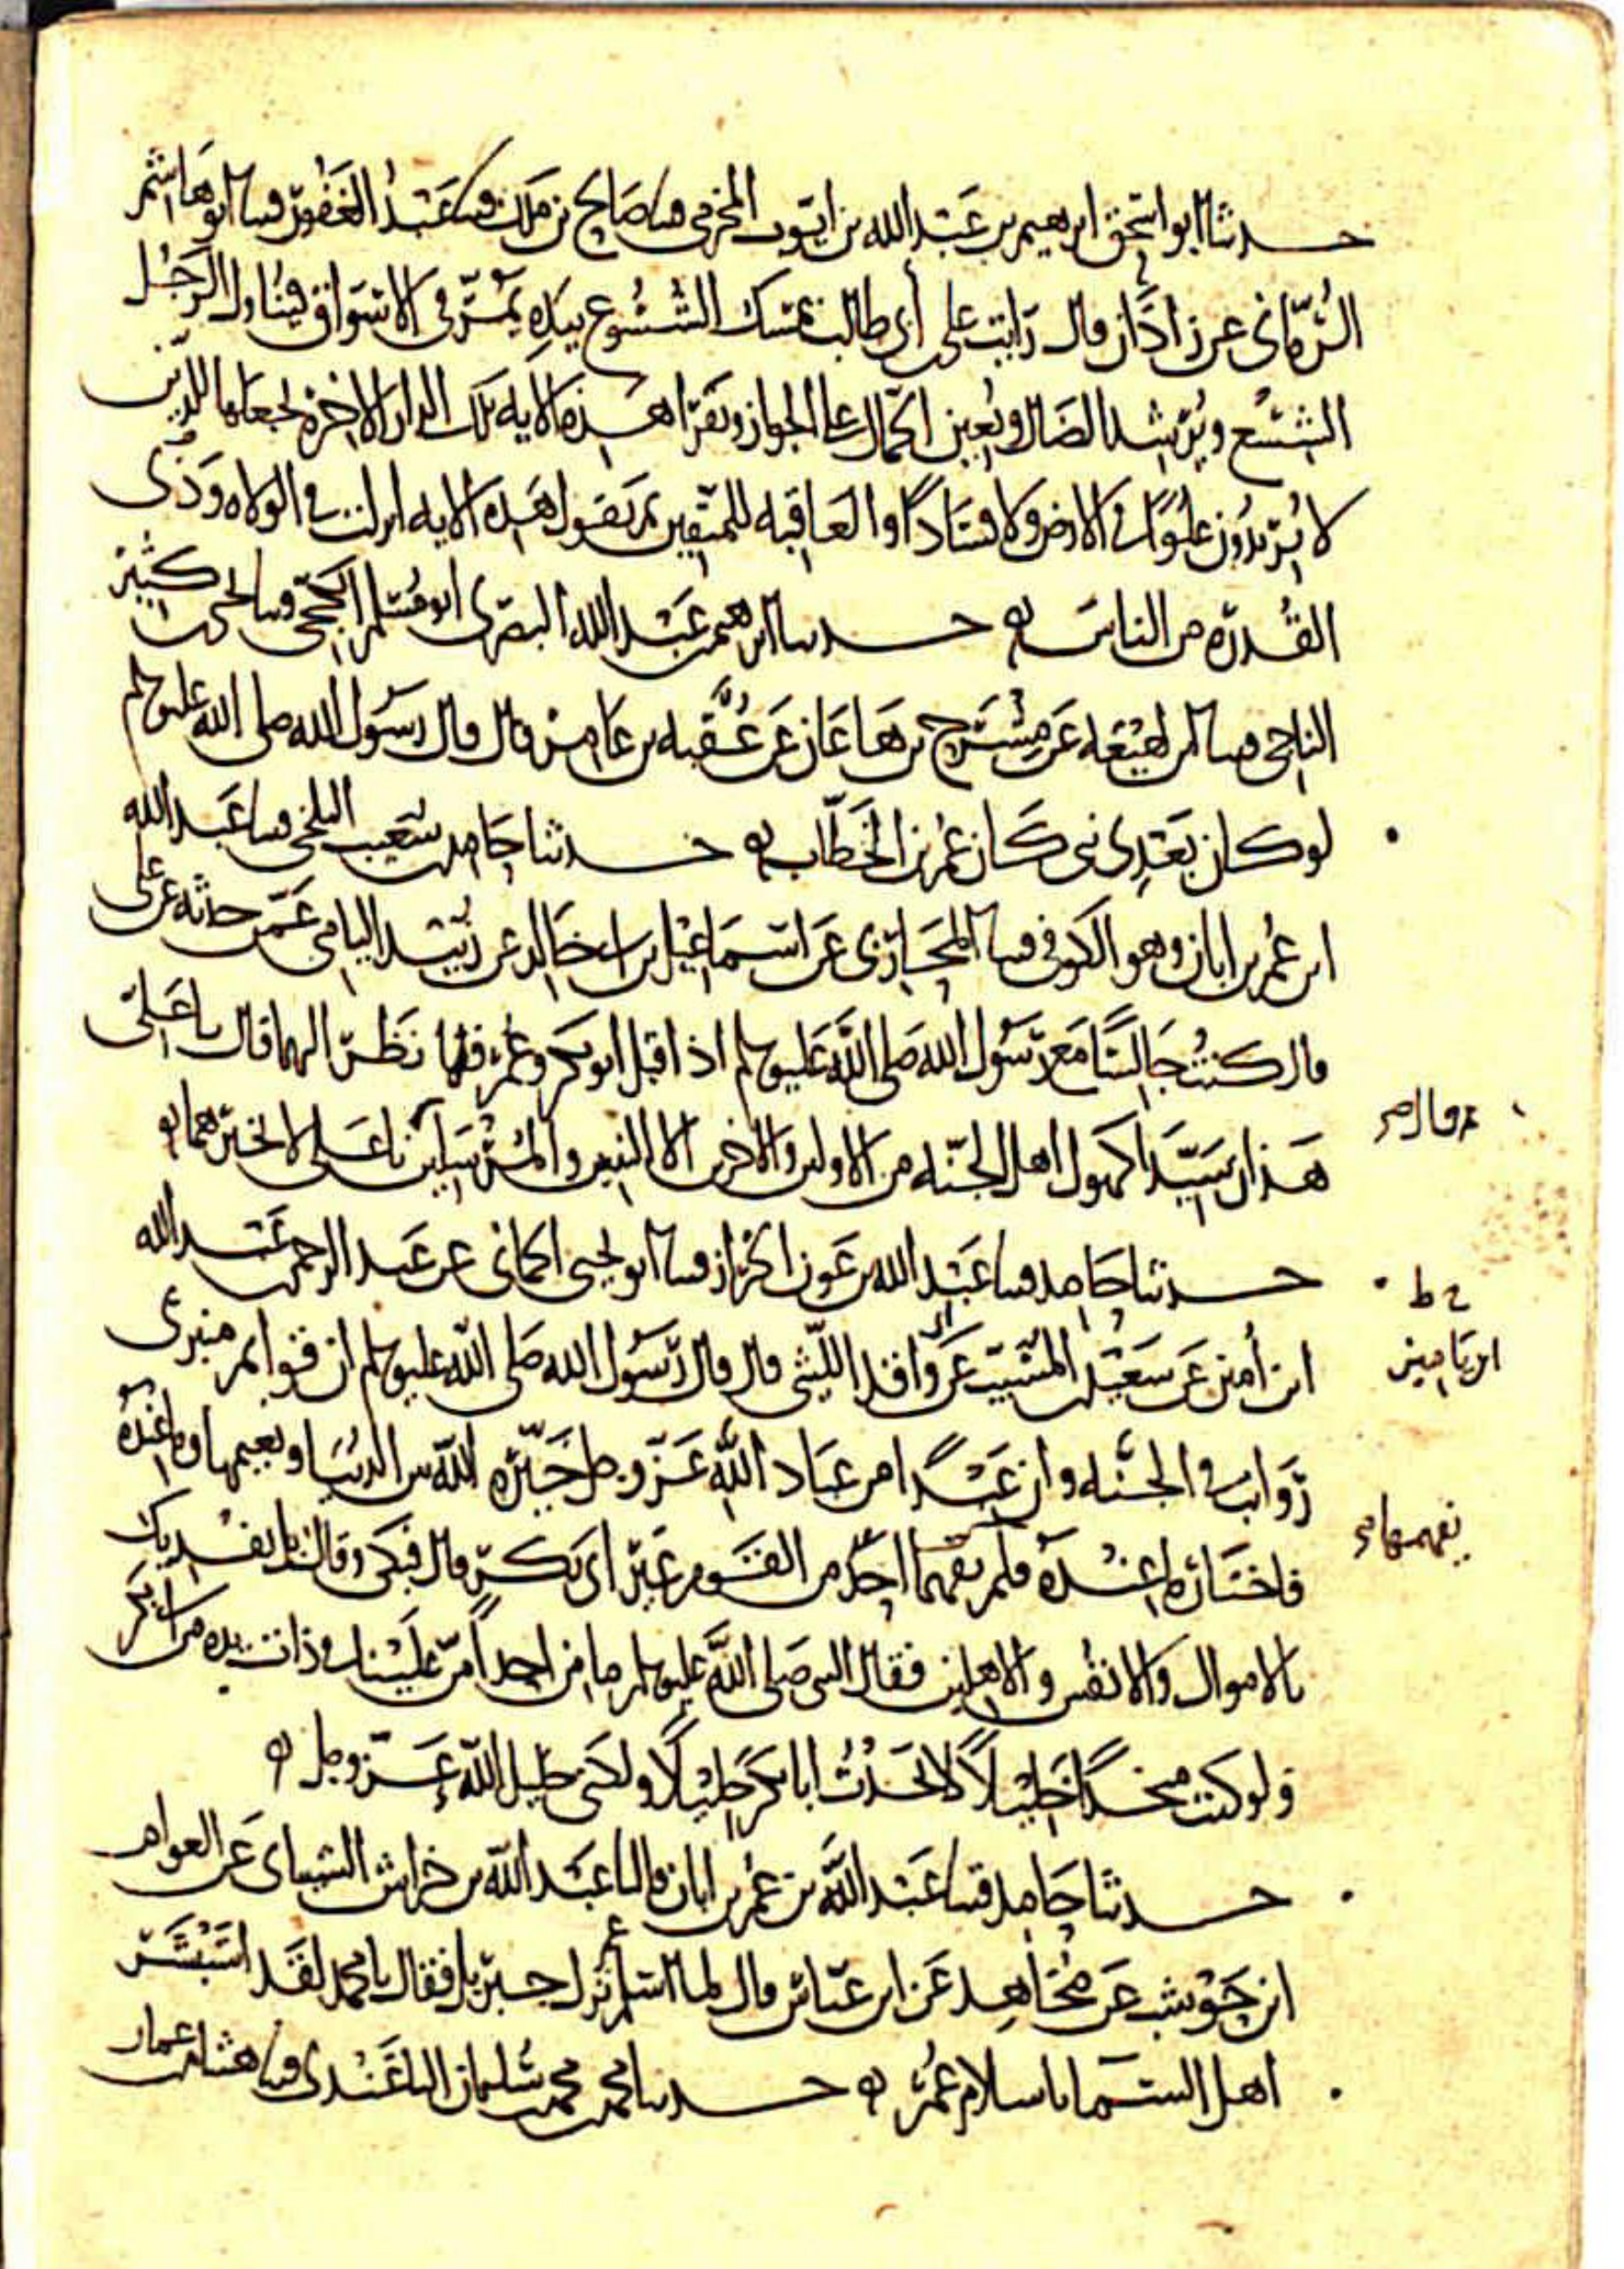 حدثنا ابو اسحق ابرهيم بن عبد الله بن ايوب المخرمي قثنا صالح بن ملك قثنا عبد الغفور قثنا ابو هاشم
الرماني عن زاذان قال رايت علي بن ابي طالب يمسك الشسوع بيده يمر في الاسواق فيناول الرجل
الشسع ويرشد الضال ويعين الحمال على الحواز ويقرا هذه الايه تلك الدار الاخرة نجعلها للذين
لا يريدون علوا في الارض ولا فسادا والعاقبه للمتقين ثم يقول هذه الايه انزلت في الولاه وذي
القدره من الناس حدثنا ابرهيم بن عبد الله البصري ابو مسلم الكجي قثنا يحيى بن كثير
الناجي قثنا ابن لهيعه عن مشرح بن هاعان عن عقبه بن عامر قال قال رسول الله صلى الله عليه وسلم
لو كان بعدي نبي كان عمر بن الخطاب حدثنا حامد بن شعيب البلخي قثنا عبد الله
ابن عمر بن ابان وهو الكوفي قثنا المحاربي عن اسماعيل بن ابي خالد عن زبيد اليامي عمن حدثه عن علي
قال كنت جالسا مع رسول الله صلى الله عليه وسلم اذ اقبل ابو بكر وعمر فلما نظر اليهما قال يا علي
هذان سيدا كهول اهل الجنه من الاولين والاخرين الا النبيين والمرسلين يا علي لا تخبرهما
حدثنا حامد قثنا عبد الله بن عون الخراز قثنا ابو يحيى الحماني عن عبد الرحمن عبد الله
ابن امين عن سعيد بن المسيب عن ابي واقد الليثي قال قال رسول الله صلى الله عليه وسلم ان قوايم منبري
رواتب في الجنه وان عبدا من عباد الله عز وجل خيره الله بين الدنيا ونعيمها وما عنده
فاختار ما عنده فلم يفهمها احد من القوم غير ابي بكر قال فبكى وقال بل نفديك
بالاموال والانفس والاهلين فقال النبي صلى الله عليه وسلم ما من احد امن علينا في ذات يده من ابي بكر
ولو كنت متخذا خليلا لاتخذت ابا بكر خليلا ولكني خليل الله عز وجل
حدثنا حامد قثنا عبد الله بن عمر بن ابان قال ثنا عبد الله بن خراش الشيباني عن العوام
ابن حوشب عن مجاهد عن ابن عباس قال لما اسلم عمر نزل جبريل فقال يا محمد لقد استبشر
اهل السما باسلام عمر حدثنا محمد بن محمد بن سليمان الباغندي قثنا هشام بن عمار
ابن يامين
يفهمها